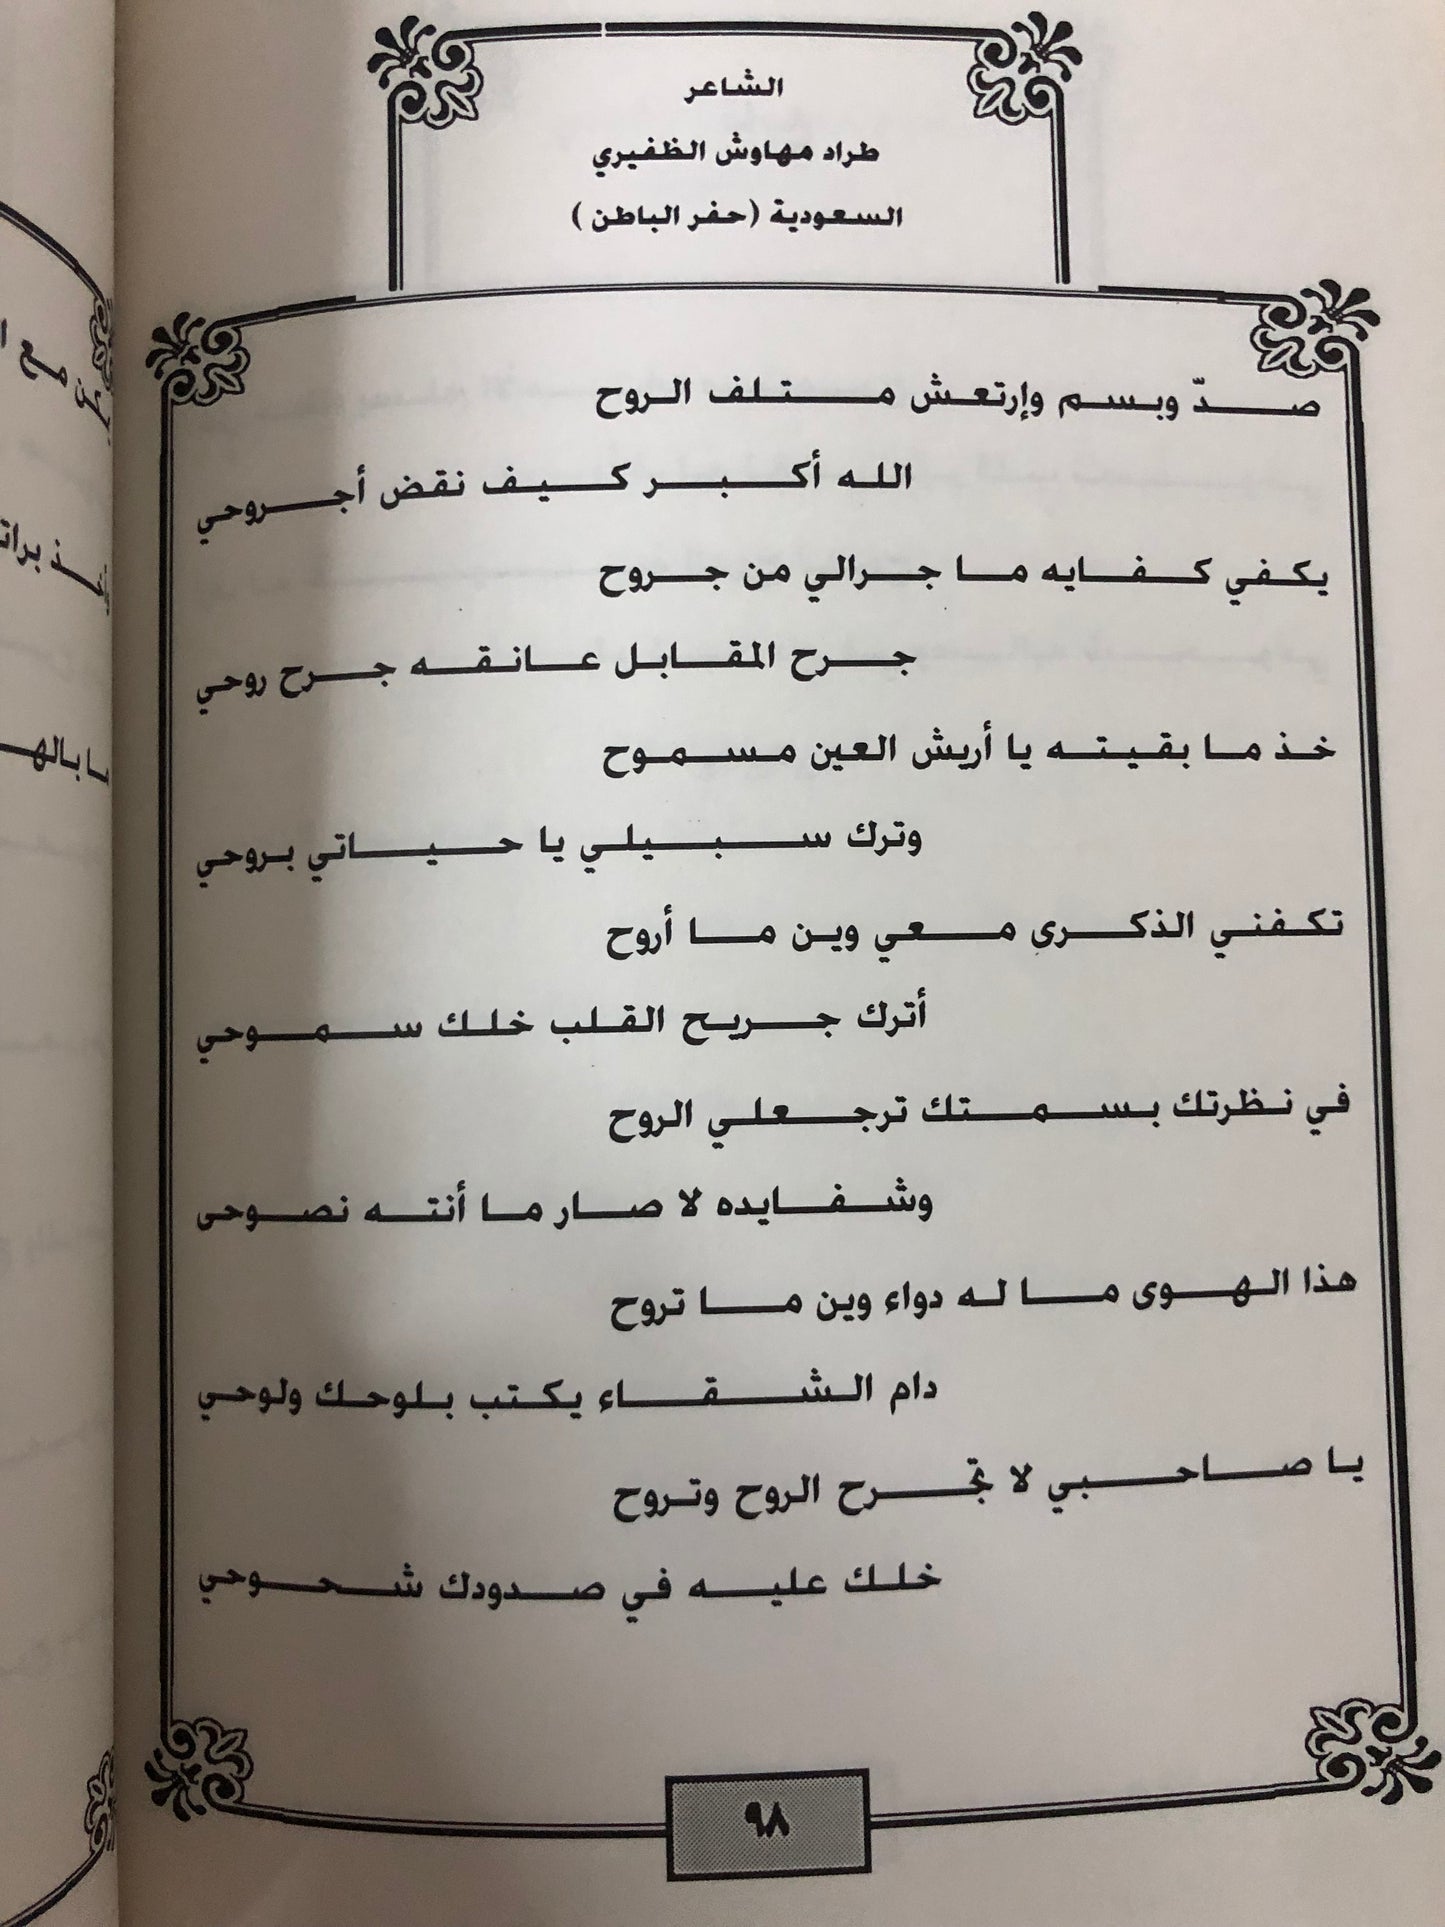 الشاعر
طراد مهاوش الظفيري
السعودية (حفر الباطن)
صدّ وبسم وإرتعش متلف الروح
الله أكبر كيف نقض أجروحي
يكفي كفايه ما جرالي من جروح
جرح المقابل عانقه جرح روحي
خذ ما بقيته يا أريش العين مسموح
وترك سبيلي يا حياتي بروحي
تكفني الذكرى معي وين ما أروح
أترك جريح القلب خلك سموحي
في نظرتك بسمتك ترجعلي الروح
وشفايده لا صار ما أنته نصوحى
هذا الهوى ما له دواء وين ما تروح
دام الشقاء يكتب بلوحك ولوحي
يا صاحبي لا تجرح الروح وتروح
خلك عليه في صدودك شحوحي
٩٨
مع
براتـ
ما بالهـ